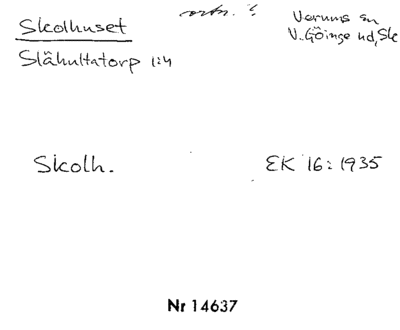 Skolhuset
ortn. ?
Verums sn
V. Göinge hd, Sk
Slähultatorp 1:4
Skolh.
EK 16: 1935
Nr 14637